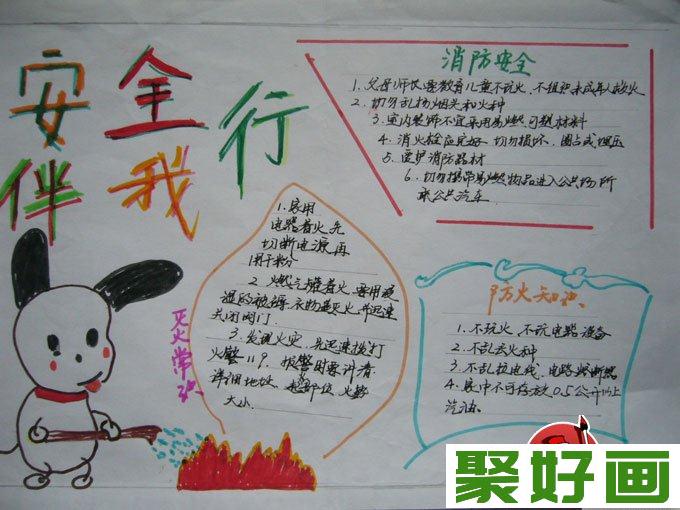 安全
伴我行
消防安全
1. 父母师长要教育儿童不玩火、不组织未成年人救火
2. 切勿乱扔烟头和火种
3. 室内装饰不宜采用易燃、可燃材料
4. 消火栓应完好 切勿损坏、圈占或埋压
5. 爱护消防器材
6. 切勿携带易燃物品进入公共场所
乘公共汽车
1. 家用
电器着火先
切断电源再
用干粉
2. 燃气罐着火,要用浸
湿的被褥、衣物盖灭火、并迅速
关闭阀门
3. 发现火灾,先迅速拨打
火警119。报警时要讲清
详细地址、起 部位、火势
大小
灭火常识
防火知识
1. 不玩火 不玩电路设备
2. 不乱丢火种
3. 不乱拉电线、电路熔断器
4. 家中不可存放0.5公升以上
汽油
聚好画